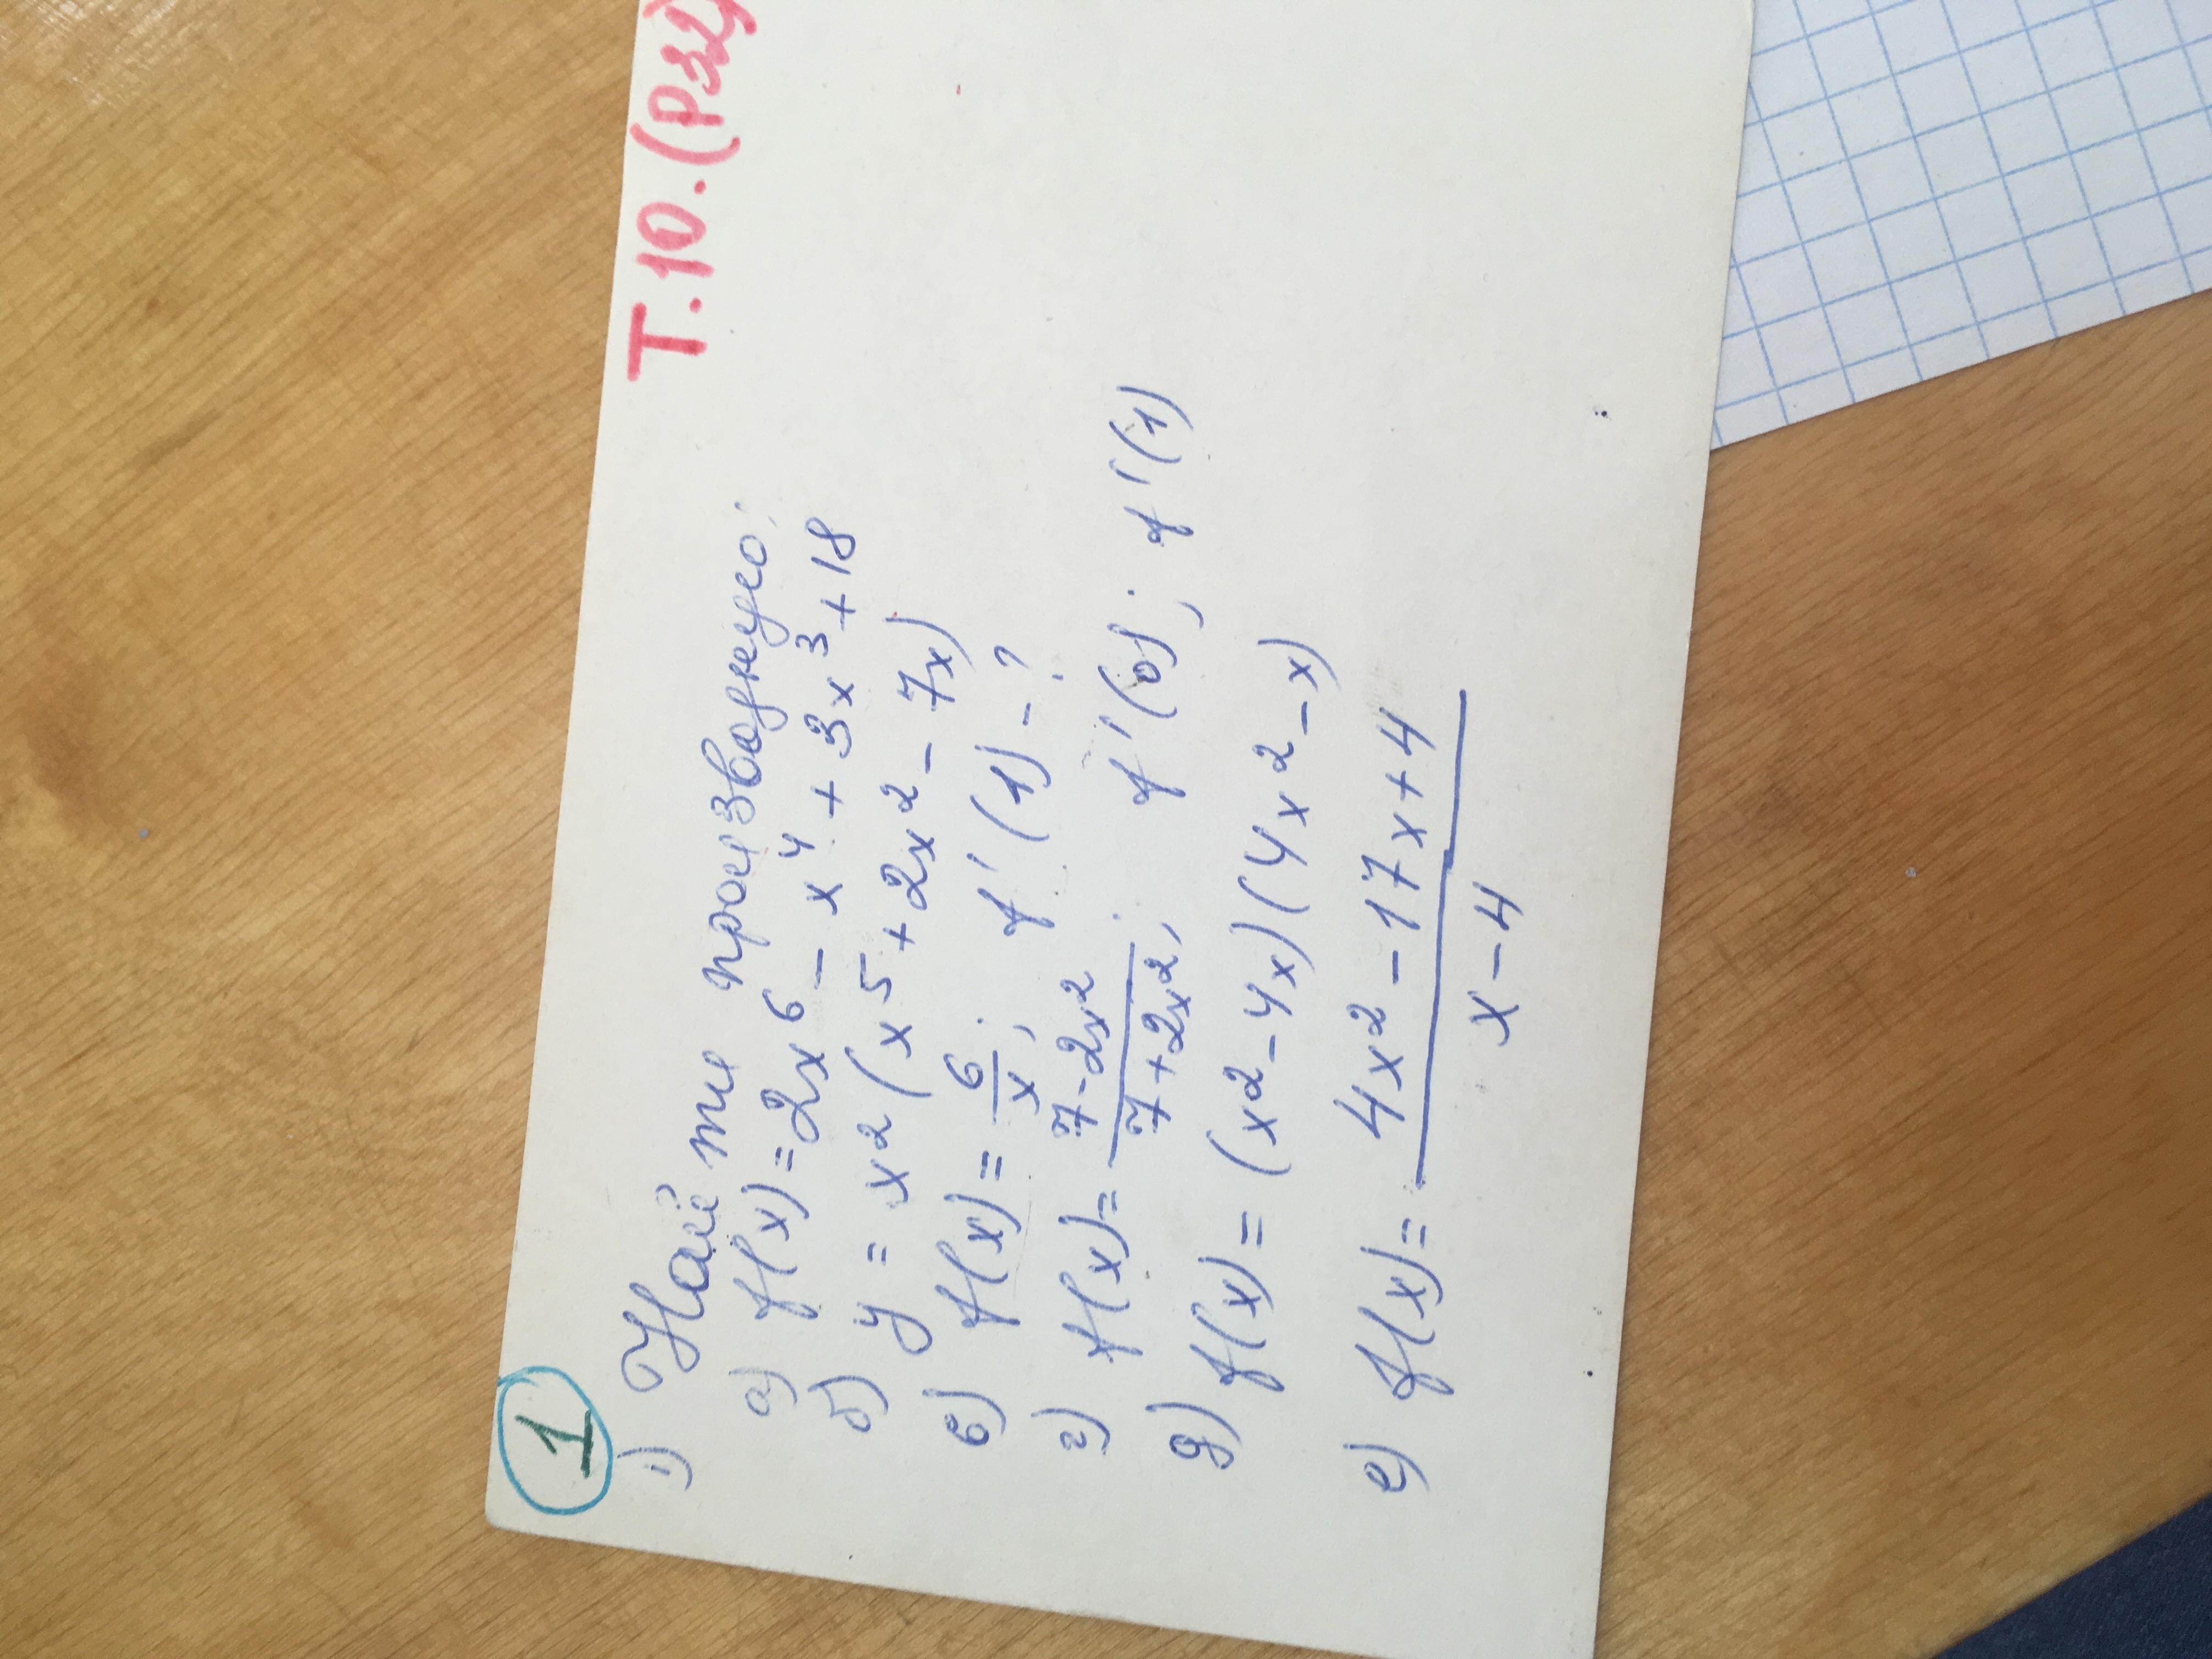 T.10.(РЗ2)
1
1) Найти производную:
а) f(x)=2x⁶-x⁴+3x³+18
б) y=x²(x⁵+2x²-7x)
в) f(x)=6/x; f'(1)-?
г) f(x)=7-2x²/7+2x²; f'(0); f'(1)
д) f(x)=(x²-4x)(4x²-x)
е) f(x)=4x²-17x+4/x-4